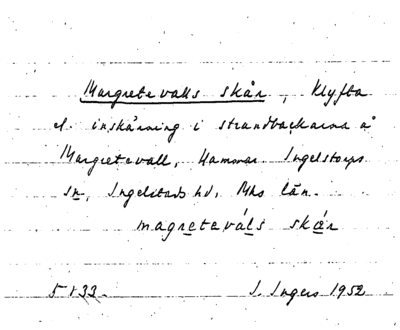 Margretevalls skår, Klyfta
el. inskärning i strandbackarna å
Margretevall, Hammar. Ingelstorps
sn, Ingelstads hd, Mhs län.
magretevál̲s skær
5 + 33.
I. Ingers 1952